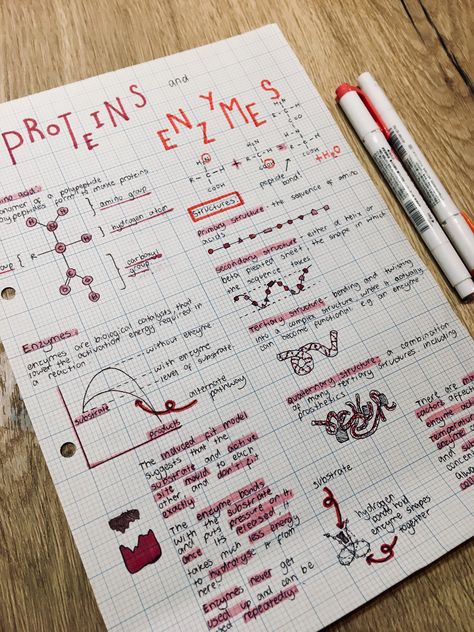 PROTEINS and ENZYMES
amino acid:
monomer of a polypeptide
polypeptides form + make proteins
amino group
hydrogen atom
carboxyl group
group
R
C
H
N
H
H
O
O
H
H
N
R - C - H
COOH
+
H
N
R - C - H
COOH
+ H₂O
peptide bond
Structures:
primary structure - the sequence of amino
acids
secondary structure - either α helix or
beta pleated sheet the shape in which
the sequence takes
Tertiary structure - bending and twisting
into a complex structure where it actually
can become functional e.g. an enzyme
Quaternary structure - a combination
of many tertiary structures including
prosthetics.
Enzymes -
enzymes are biological catalysts that
lower the activation energy required in
a reaction
without enzyme
with enzyme
level of substrate
alternate
pathway
substrate
products
The induced fit model
suggests that the
substrate and active
site mould to each
other and don't fit
exactly.
The enzyme bonds
with the substrate
and puts pressure on it,
once it's released it
takes much less energy
to hydrolyse it from
here
Enzymes never get
used up and can be
used repeatedly.
substrate
hydrogen
bonds fold
enzyme shapes
together
There are
factors affect
enzyme
temperature
enzyme
and
concen